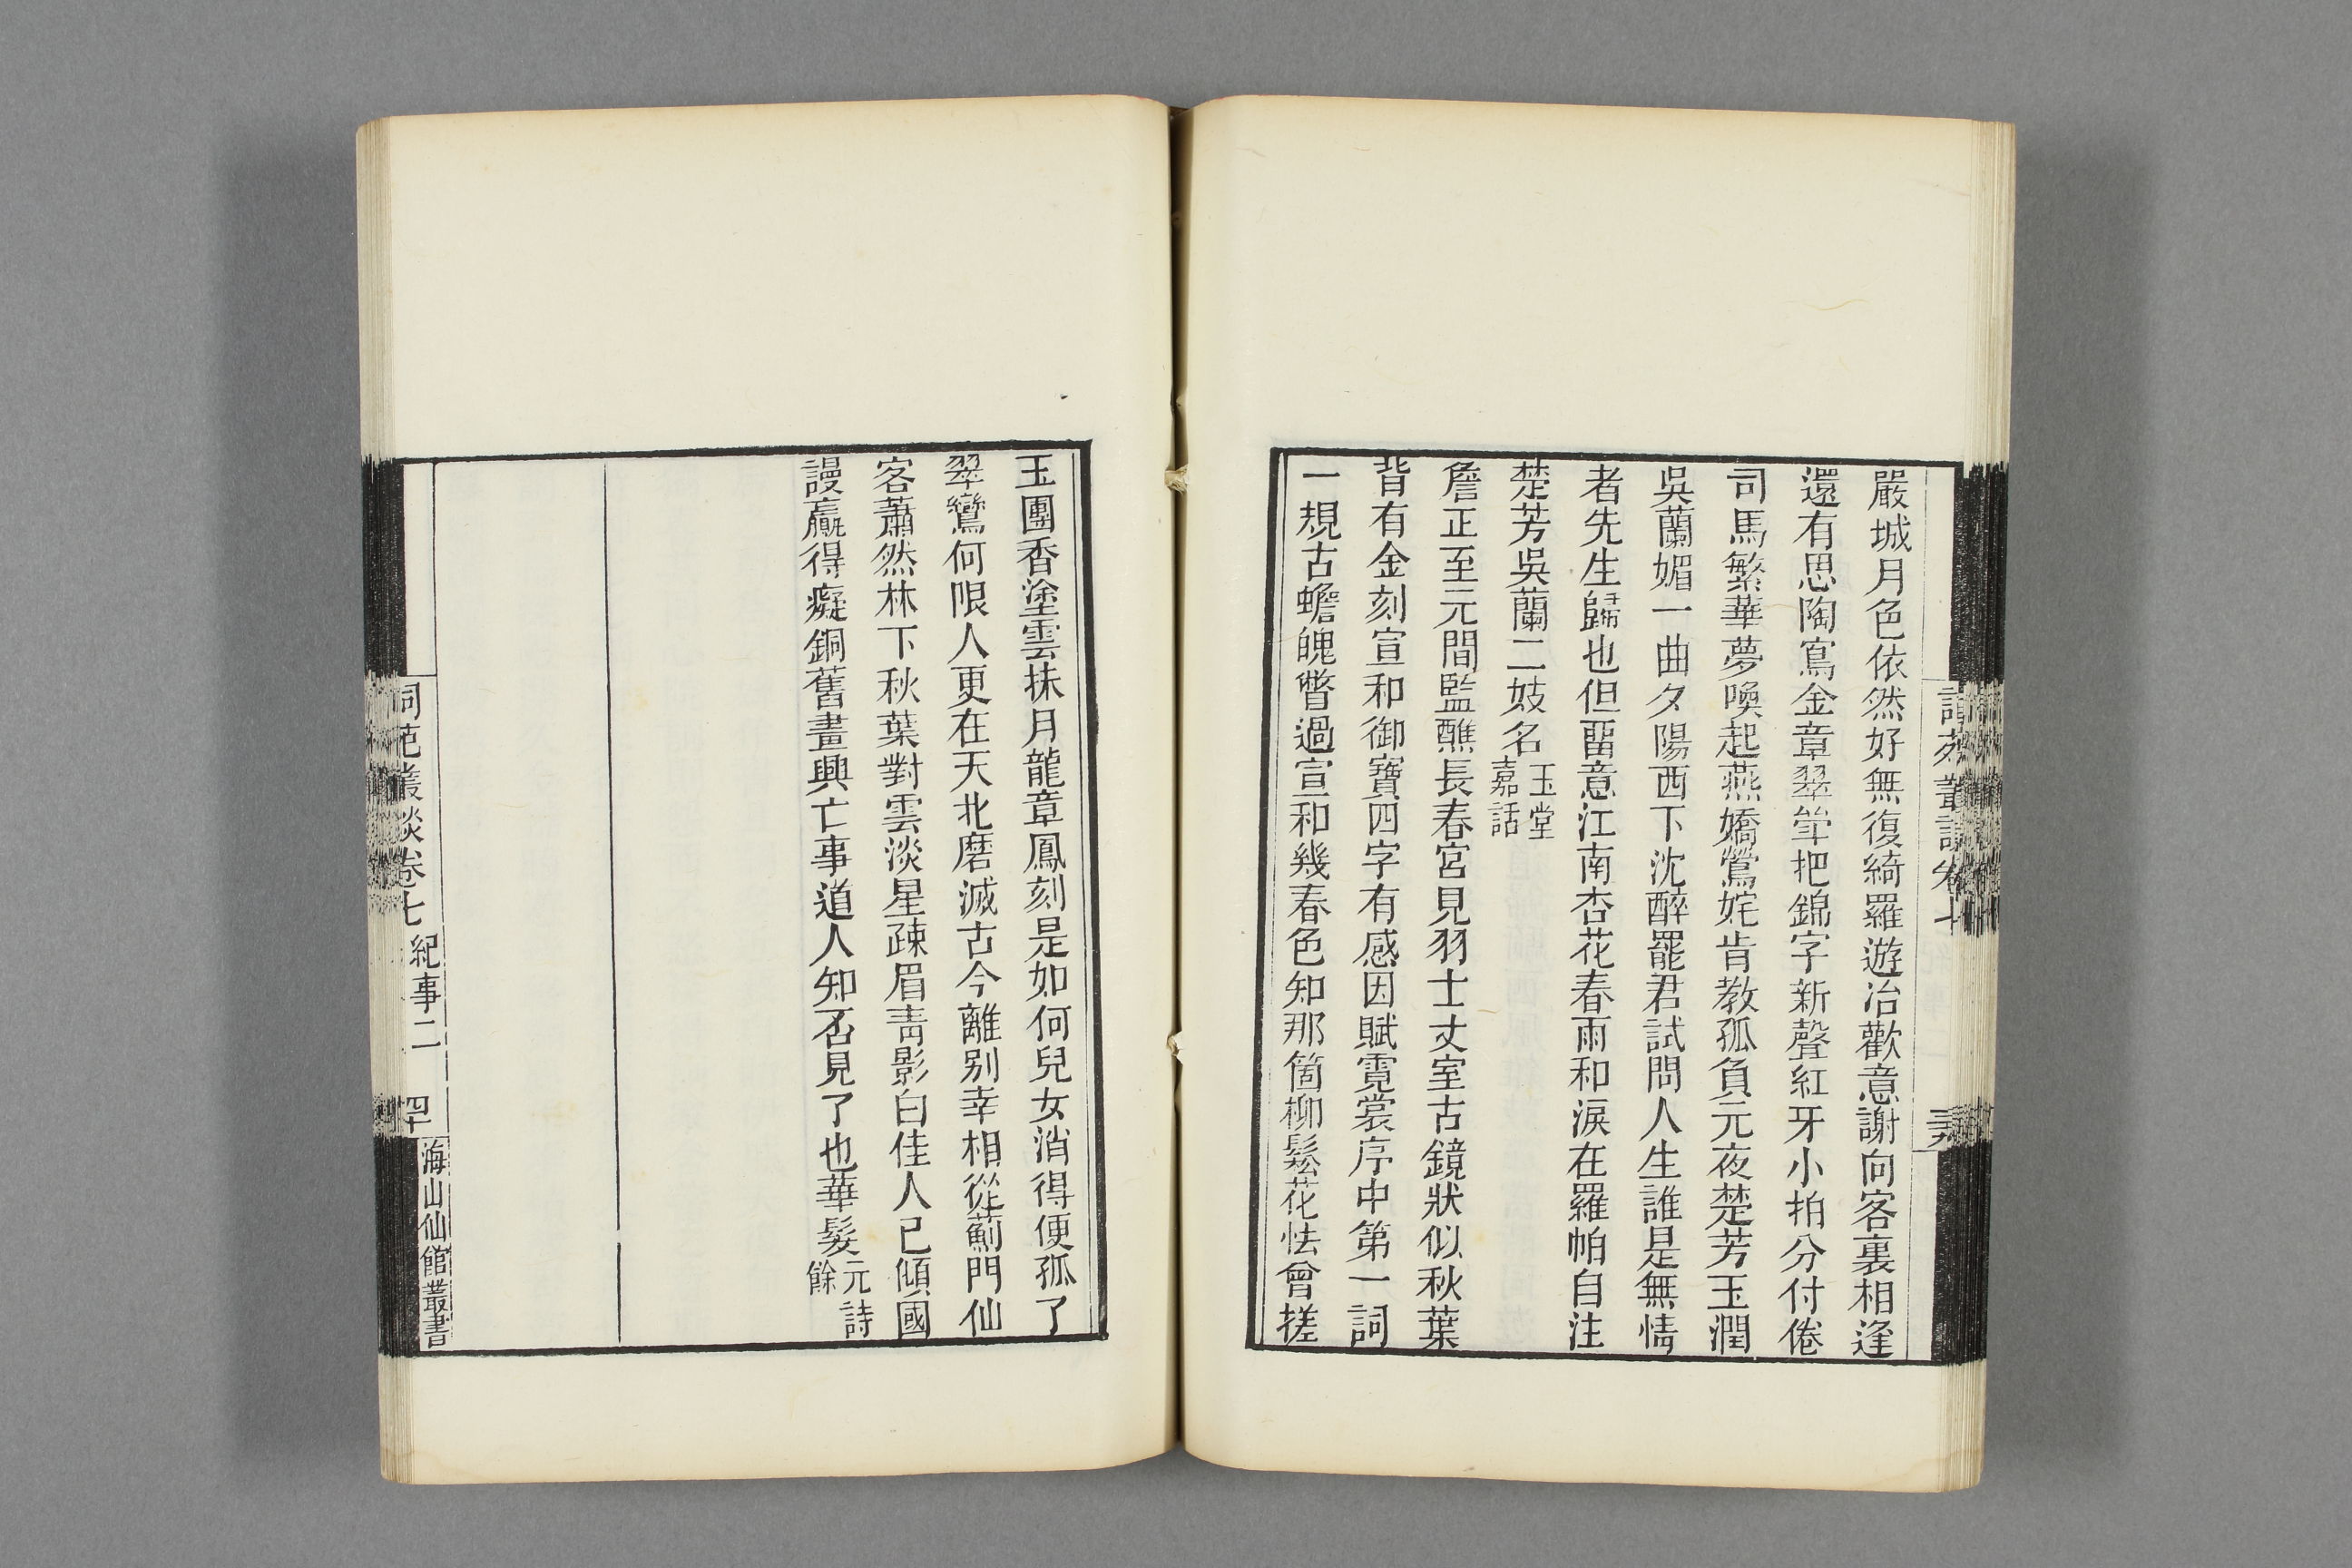 嚴城月色依然好無復綺羅遊冶歡意謝向客裏相逢
還有思陶寫金章翠斝把錦字新聲紅牙小拍分付倦
司馬繁華夢喚起燕嬌鶯姹肯教孤負元夜楚芳玉潤
吳蘭媚一曲夕陽西下沈醉罷君試問人生誰是無情
者先生歸也但畱意江南杏花春雨和淚在羅帕自注
楚芳吳蘭二妓名玉堂
嘉話
詹正至元間監醮長春宮見羽士丈室古鏡狀似秋葉
背有金刻宣和御寶四字有感因賦霓裳序中第一詞
一規古蟾魄瞥過宣和幾春色知那箇柳鬆花怯曾搓
玉團香塗雲抹月龍章鳳刻是如何兒女消得便孤了
翠鸞何限人更在天北磨滅古今離别幸相從薊門仙
客蕭然林下秋葉對雲淡星疎眉靑影白佳人已傾國
謾贏得癡銅舊畫興亡事道人知否見了也華髮元詩
餘
詞苑叢談卷七 紀事二 四十
海山仙館叢書